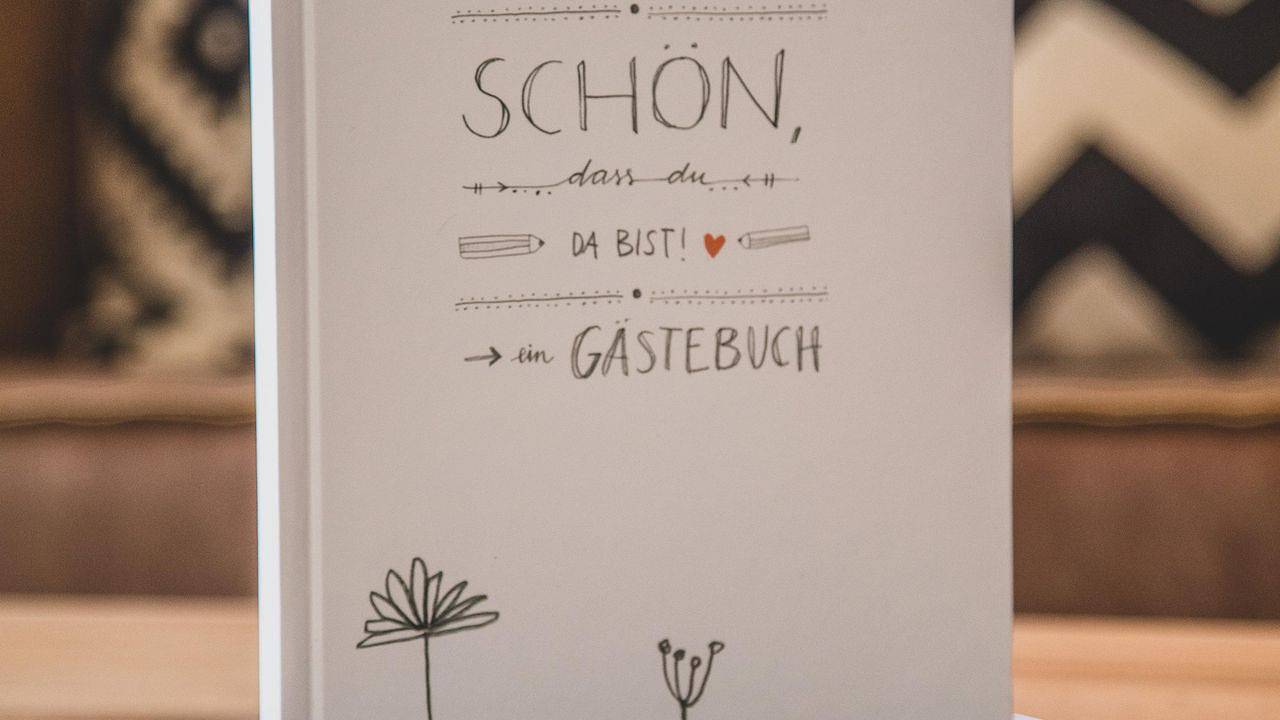 SCHÖN,
dass du
DA BIST!
ein GÄSTEBUCH